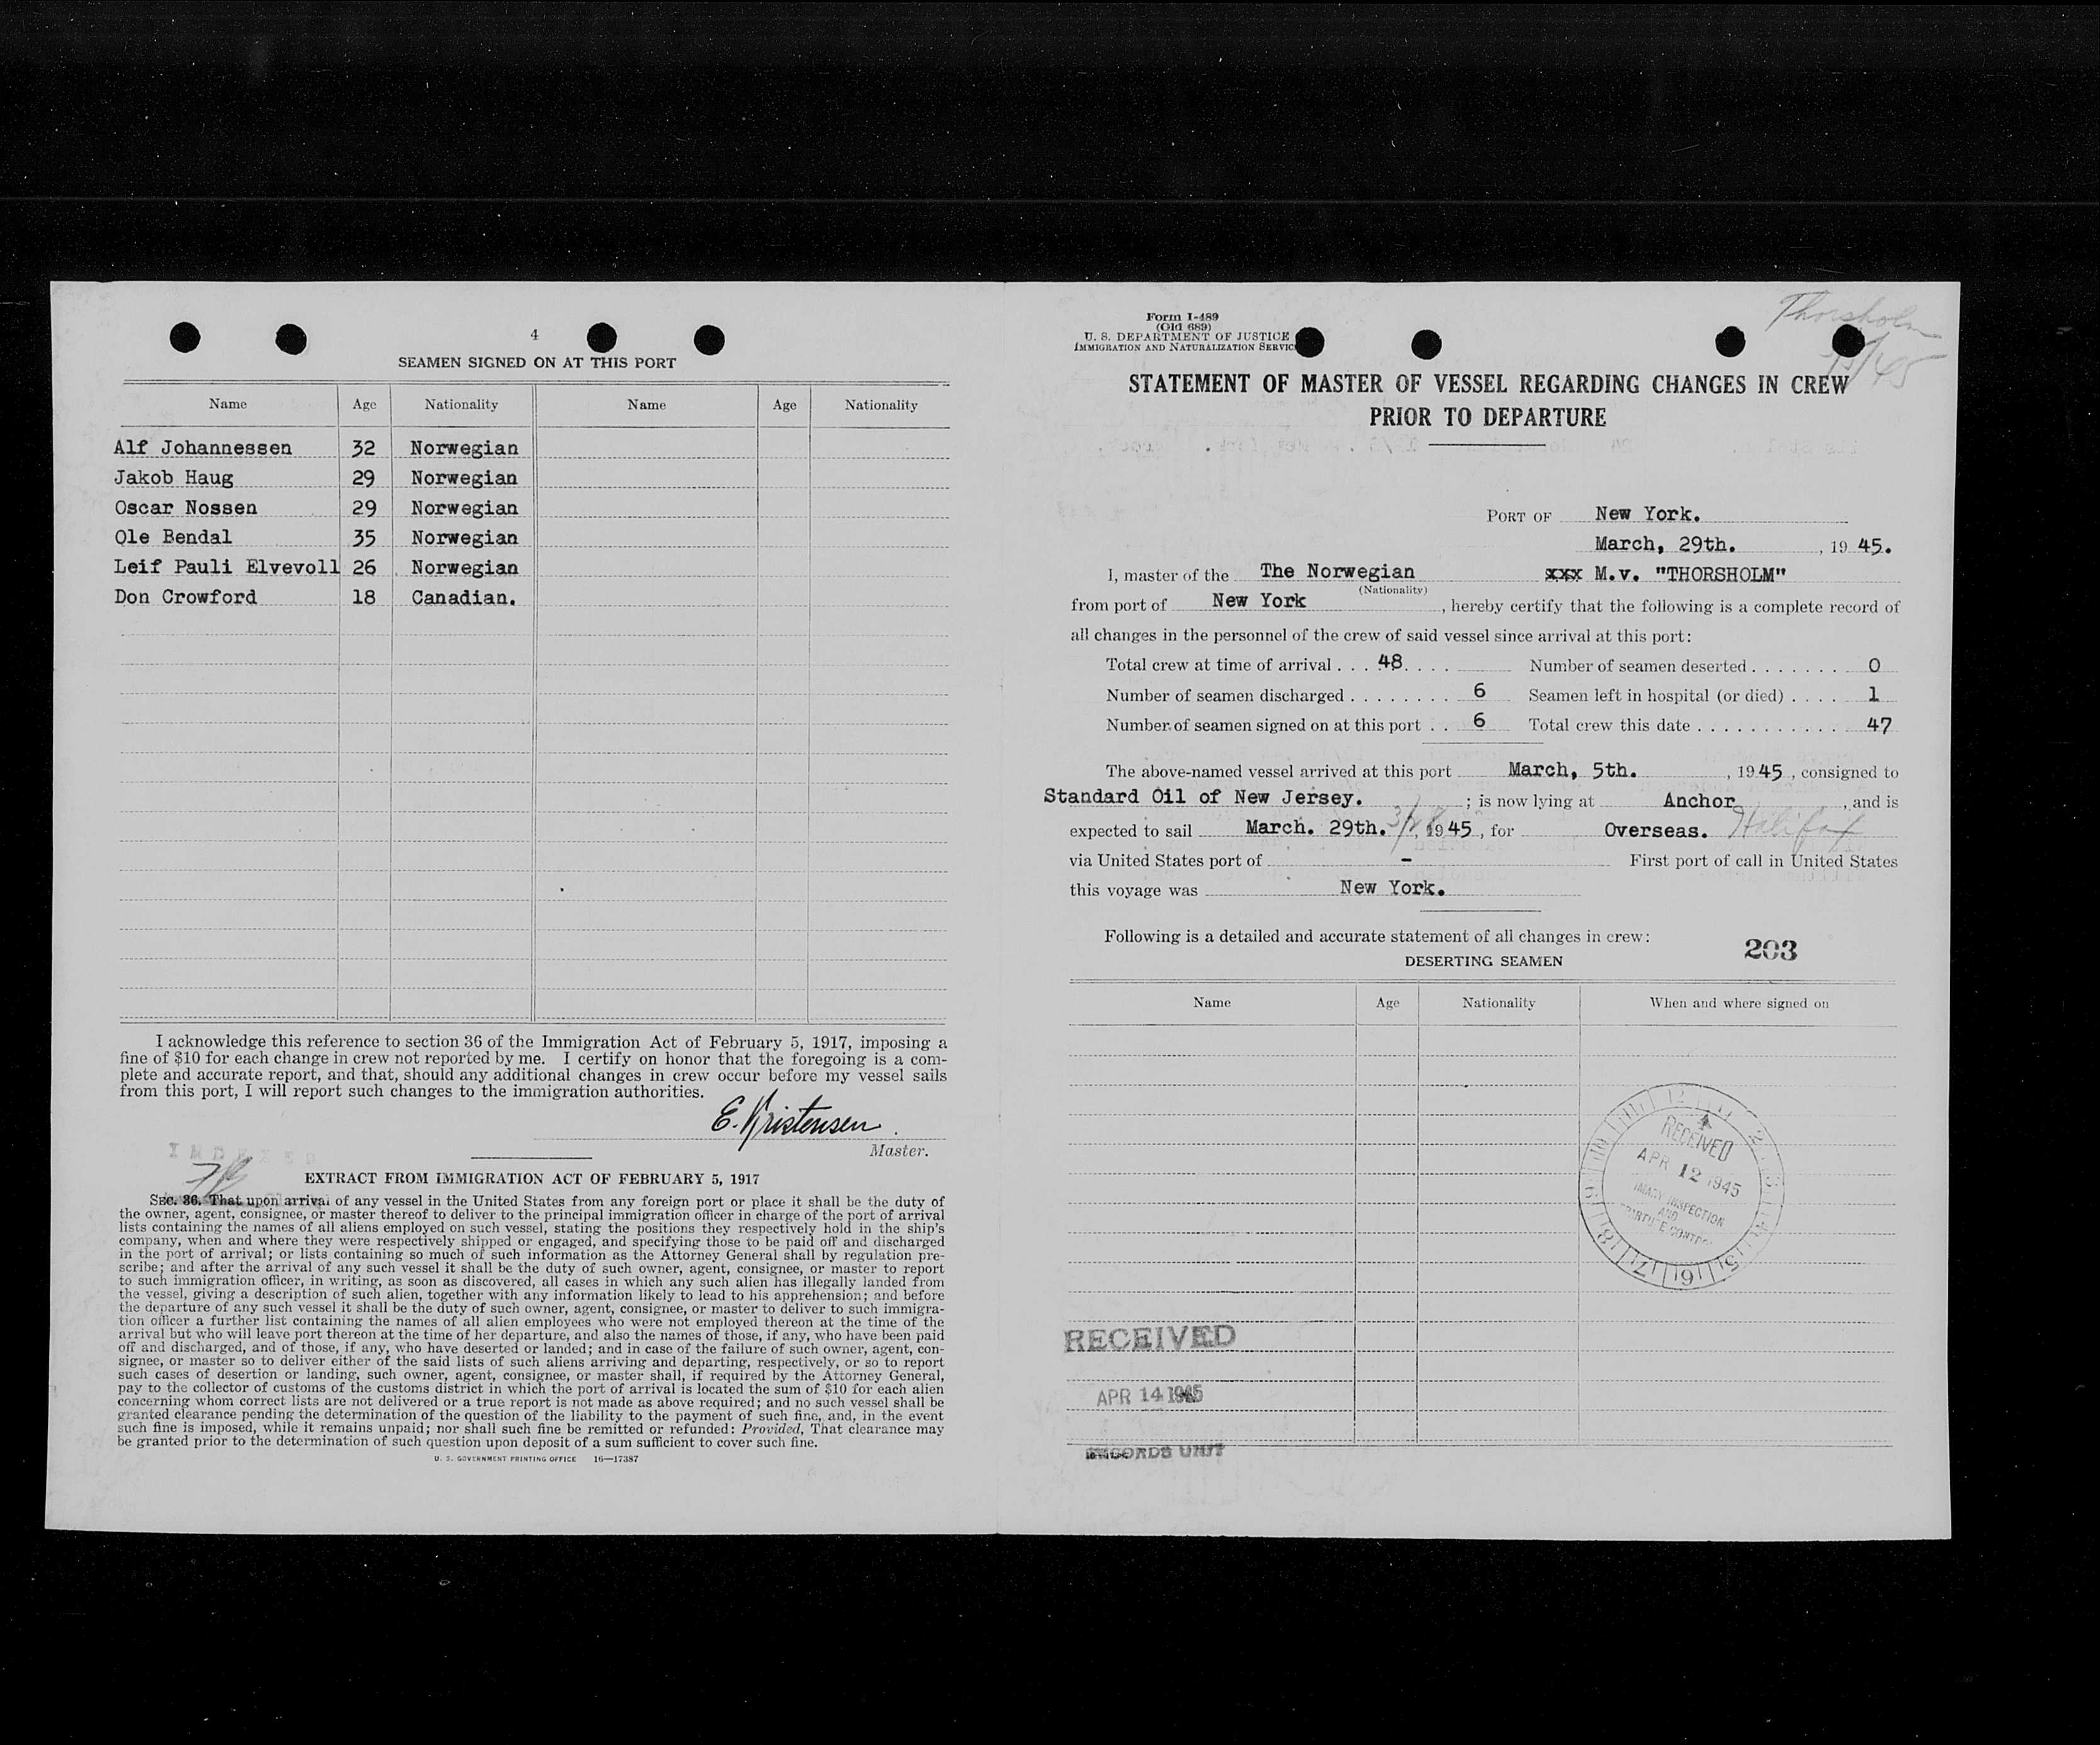 4
SEAMEN SIGNED ON AT THIS PORT
Name Age Nationality Name Age Nationality
Alf Johannessen 32 Norwegian
Jakob Haug 29 Norwegian
Oscar Nossen 29 Norwegian
Ole Bendal 35 Norwegian
Leif Pauli Elvevoll 26 Norwegian
Don Crowford 18 Canadian.
I acknowledge this reference to section 36 of the Immigration Act of February 5, 1917, imposing a
fine of $10 for each change in crew not reported by me. I certify on honor that the foregoing is a com-
plete and accurate report, and that, should any additional changes in crew occur before my vessel sails
from this port, I will report such changes to the immigration authorities.
E. Kristensen.
Master.
INDEXED
EXTRACT FROM IMMIGRATION ACT OF FEBRUARY 5, 1917
SEC. 36. That upon arrival of any vessel in the United States from any foreign port or place it shall be the duty of
the owner, agent, consignee, or master thereof to deliver to the principal immigration officer in charge of the port of arrival
lists containing the names of all aliens employed on such vessel, stating the positions they respectively hold in the ship's
company, when and where they were respectively shipped or engaged, and specifying those to be paid off and discharged
in the port of arrival; or lists containing so much of such information as the Attorney General shall by regulation pre-
scribe; and after the arrival of any such vessel it shall be the duty of such owner, agent, consignee, or master to report
to such immigration officer, in writing, as soon as discovered, all cases in which any such alien has illegally landed from
the vessel, giving a description of such alien, together with any information likely to lead to his apprehension; and before
the departure of any such vessel it shall be the duty of such owner, agent, consignee, or master to deliver to such immigra-
tion officer a further list containing the names of all alien employees who were not employed thereon at the time of the
arrival but who will leave port thereon at the time of her departure, and also the names of those, if any, who have been paid
off and discharged, and of those, if any, who have deserted or landed; and in case of the failure of such owner, agent, con-
signee, or master so to deliver either of the said lists of such aliens arriving and departing, respectively, or so to report
such cases of desertion or landing, such owner, agent, consignee, or master shall, if required by the Attorney General,
pay to the collector of customs of the customs district in which the port of arrival is located the sum of $10 for each alien
concerning whom correct lists are not delivered or a true report is not made as above required; and no such vessel shall be
granted clearance pending the determination of the question of the liability to the payment of such fine, and, in the event
such fine is imposed, while it remains unpaid; nor shall such fine be remitted or refunded: Provided, That clearance may
be granted prior to the determination of such question upon deposit of a sum sufficient to cover such fine.
U. S. GOVERNMENT PRINTING OFFICE 16—17387
Thorsholm
Form I-489
(Old 689)
U. S. DEPARTMENT OF JUSTICE
IMMIGRATION AND NATURALIZATION SERVIC
STATEMENT OF MASTER OF VESSEL REGARDING CHANGES IN CREW
PRIOR TO DEPARTURE
PORT OF New York.
March, 29th. , 19 45.
I, master of the The Norwegian xxx M.v. "THORSHOLM"
(Nationality)
from port of New York , hereby certify that the following is a complete record of
all changes in the personnel of the crew of said vessel since arrival at this port:
Total crew at time of arrival . . . 48. . . . Number of seamen deserted . . . . . . . 0
Number of seamen discharged . . . . . . . . 6 Seamen left in hospital (or died) . . . . 1
Number of seamen signed on at this port . . 6 Total crew this date . . . . . . . . . . . . 47
The above-named vessel arrived at this port March, 5th. , 19 45 , consigned to
Standard Oil of New Jersey. ; is now lying at Anchor , and is
expected to sail March. 29th. 1945 , for Overseas. Halifax
via United States port of - First port of call in United States
this voyage was New York.
Following is a detailed and accurate statement of all changes in crew:
203
DESERTING SEAMEN
Name Age Nationality When and where signed on
RECEIVED
APR 12 1945
INSPECTION
AND
RECEIVED
APR 14 1945
RECORDS UNIT